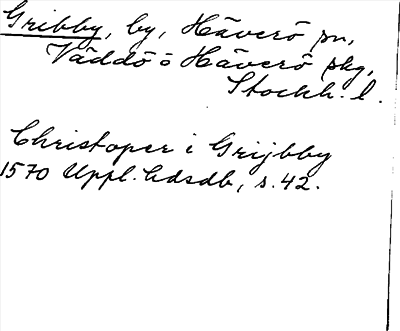 Gribby, by, Häverö sn,
Väddö o Häverö skg,
Stockh. l.
Christoper i Grijbby
1570 Uppl. hdsdb, s. 42.